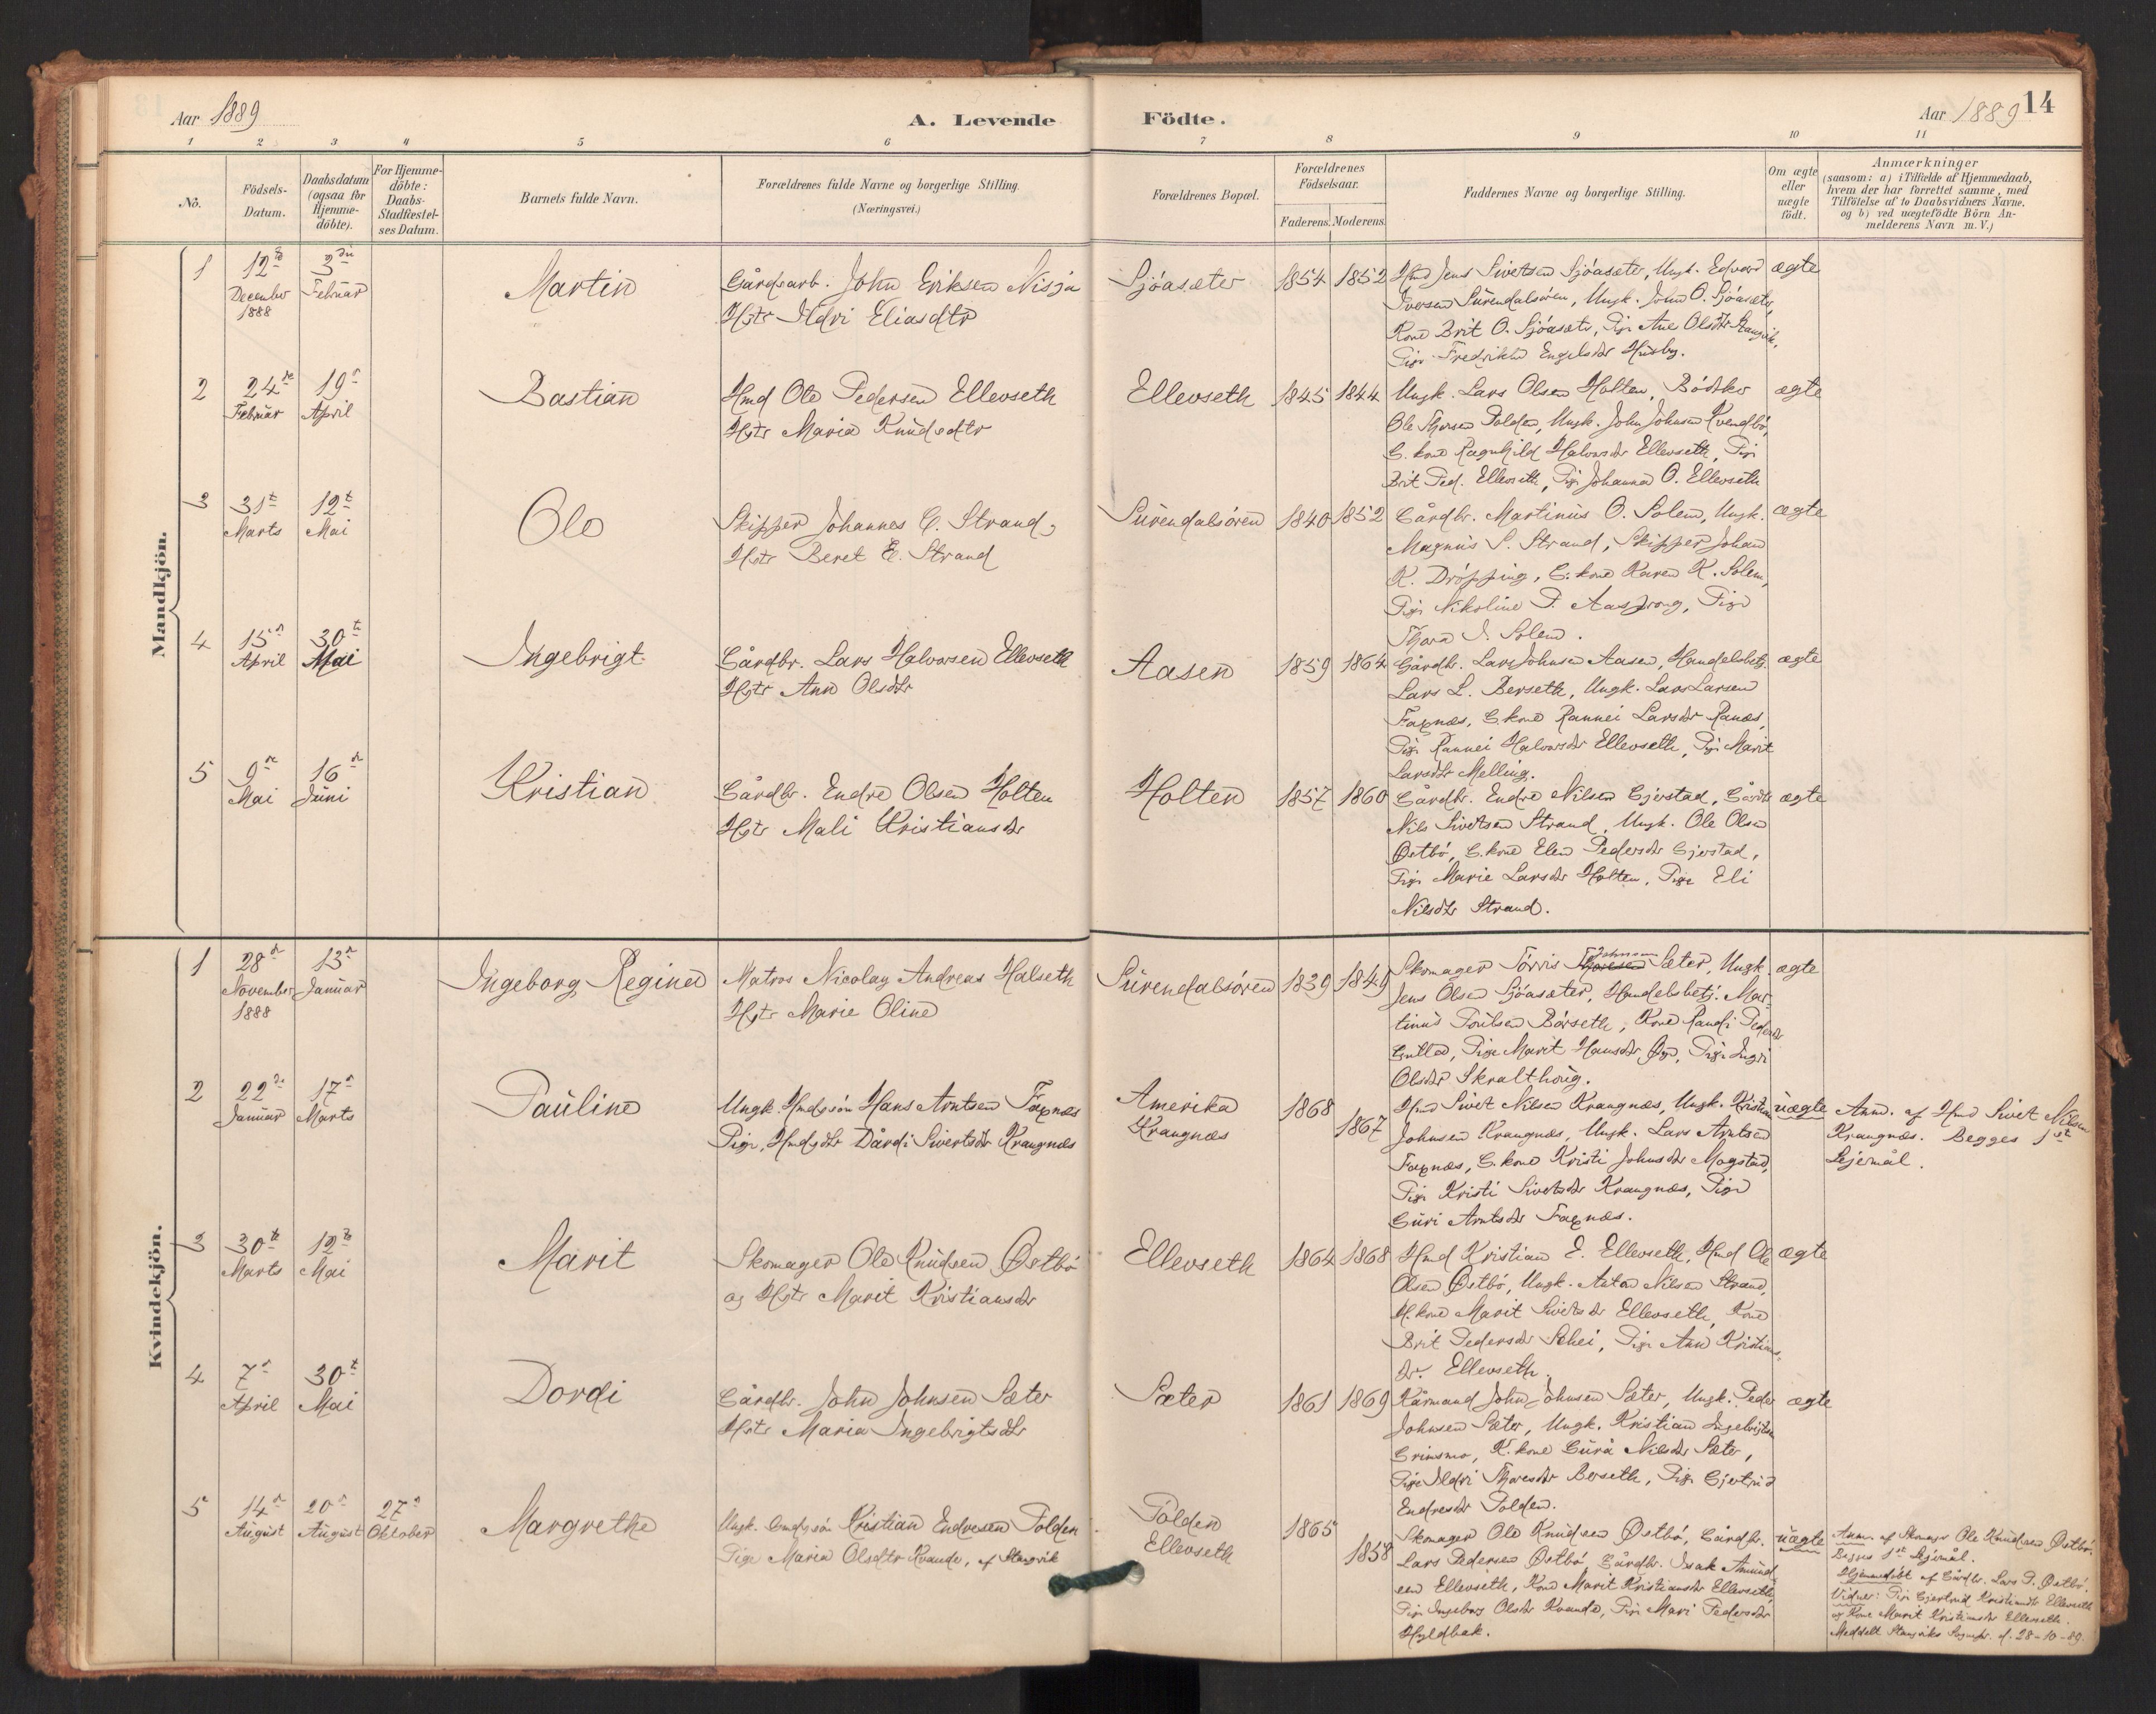 Aar 1889 A. Levende Födte. Aar 1889 14
1 2 3 4 5 6 7 8 9 10 11
Nö. Födsels-Datum. Daabsdatum (ogsaa for Hjemme-döbte). For Hjemme-döbte: Daabs-Stadfæstel-ses Datum. Barnets fulde Navn. Forældrenes fulde Navne og borgerlige Stilling. (Næringsvei.) Forældrenes Bopæl. Forældrenes Födselsaar. Faderens. Moderens. Faddernes Navne og borgerlige Stilling. Om ægte eller uægte födt. Anmærkninger (saasom: a) i Tilfælde af Hjemmedaab, hvem der har forrettet samme, med Tilföielse af to Daabsvidners Navne, og b) ved uægtefödte Börn An-melderens Navn m. V.)
Mandkjön.
1 12te December 1888 3die Februar Martin
Gårdsarb. John Eriksen Nisja
Hstr Ildri Eliasdtr
Sjöasæter 1854 1852
Hmd Jens Sivertsen Sjöasæter, Ungk. Edvard
Iversen Surendalsören, Ungk. John O. Sjöasæter,
Kone Brit O. Sjöasæter, Pige Ane Olsdtr
Pige Fredrikke Engelsdtr Husby.
ægte
2 24de Februar 19de April Bastian
Hmd Ole Pedersen Ellevseth
Hstr Maria Knudsdtr
Ellevseth 1845 1844
Ungk. Lars Olsen Holten, Bödker
Ole Polden, Ungk. John Johnsen Kvendbö,
G. kone Ragnhild Halvorsdtr Ellevseth, Pige
Brit Ped. Ellevseth, Pige Johanna O. Ellevseth
ægte
3 31te Marts 12te Mai Ole
Skipper Johannes G. Strand,
Hstr Beret E. Strand
Surendalsören 1840 1852
Gårdbr. Martinus O. Solem, Ungk.
Magnus S. Strand, Skipper Johan
K. Dröpping, G. kone Karen K. Solem,
Pige Nikoline P. Aasprong, Pige
Thora J. Solem.
ægte
4 15de April 30te Mai Ingebrigt
Gårdbr. Lars Halvorsen Ellevseth
Hstr Ane Olsdtr
Aasen 1859 1864
Gårdbr. Lars Johnsen Aasen, Handelsbetj.
Lars L. Berseth, Ungk. Lars Larsen
Faxnæs, G. kone Rannei Larsdtr Ranæs,
Pige Rannei Halvorsdtr Ellevseth, Pige Marit
Larsdtr Melling.
ægte
5 9de Mai 16de Juni Kristian
Gårdbr. Endre Olsen Holten
Hstr Mali Kristiansdtr
Holten 1857 1860
Gårdbr. Endre Nilsen Gjerstad, Gårdbr
Nils Sivertsen Strand, Ungk. Ole Olsen
Østbö, G. kone Elen Pedersdtr Gjerstad,
Pige Marie Larsdtr Holten, Pige Eli
Nilsdtr Strand.
ægte
Kvindekjön.
1 28de November 1888 13de Januar Ingeborg Regine
Matros Nicolay Andreas Halseth
Hstr Marie Oline
Surendalsören 1839 1849
Johnsen
Skomager Törris Sæter, Ungk.
Jens Olsen Sjöasæter, Handelsbetj. Mar-
tinus Poulsen Börseth, Kone Randi Pedersdtr
Pige Marit Hansdtr Øye, Pige Ingri
Olsdtr Skralthoug.
ægte
2 22de Januar 17de Marts Pauline
Ungk. Hmdssön Hans Arntsen Faxnæs
Pige, Hmdsdtr Dårdi Sivertsdtr Krangnæs
Amerika
Krangnæs
1868 1867
Hmd Sivert Nilsen Krangnæs, Ungk. Kristian
Johnsen Krangnæs, Ungk. Lars Arntsen
Faxnæs, G. kone Kristi Johnsdtr Mogstad,
Pige Kristi Sivertsdtr Krangnæs, Pige
Guri Arntsdtr Faxnæs.
uægte
Anm. af Hmd Sivert Nilsen
Krangnæs. Begges 1ste
Lejemål.
3 30te Marts 12te Mai Marit
Skomager Ole Knudsen Østbö
og Hstr Marit Kristiansdtr
Ellevseth 1864 1868
Hmd Kristian E. Ellevseth, Hmd Ole
Olsen Østbö, Ungk. Anton Nilsen Strand,
H. kone Marit Sivertsdtr Ellevseth, Kone
Brit Pedersdtr Schei, Pige Ane Kristians-
dtr. Ellevseth.
ægte
4 7de April 30te Mai Dordi
Gårdbr. John Johnsen Sæter
Hstr Maria Ingebrigtsdtr
Sæter 1861 1869
Kårmand John Johnsen Sæter, Ungk. Peder
Johnsen Sæter, Ungk. Kristian Ingebrigtsen
Grimsmo, K. kone Guru Nilsdtr Sæter,
Pige Ildri Thoresdtr Berseth, Pige Gjertrud
Endresdtr Polden.
ægte
5 14de August 20de August 27de Oktober Margrethe
Ungk. Gmdssön Kristian Endresen Polden
Pige Maria Olsdtr Kvande, af Stangvik
Polden
Ellevseth
1865 1858
Skomager Ole Knudsen Østbö, Gårdbr.
Lars Pedersen Østbö, Gårdbr. Isak Amund-
sen Ellevseth, Kone Marit Kristiansdtr Ellevseth,
Pige Ingeborg Olsdtr Kvande, Pige Mari Pedersdtr
Hyldbak.
uægte
Anm. af Skomager Ole Knudsen Østbö.
Begges 1ste Lejemål.
Hjemmedöbt af Gårdbr. Lars P. Østbö.
Vidner: Pige Gjertrud Kristiansdtr Ellevseth
og Kone Marit Kristiansdtr Ellevseth.
Meddelt Stangviks Sognepr. d. 28-10-89.